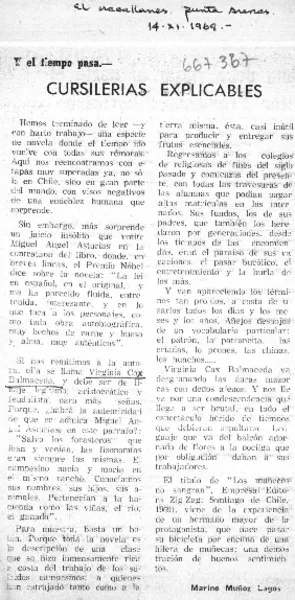 El Magallanes, Punta Arenas.
14-XI-1969.-
667367
Y el tiempo pasa.—
CURSILERIAS EXPLICABLES
Hemos terminado de leer —y
con harto trabajo— una especie
de novela donde el tiempo ido
vuelve con todas sus rémoras.
Aquí nos reencontramos con e-
tapas muy superadas ya, no só-
lo en Chile, sino en gran parte
del mundo, con visos negativos
de una enichez humana que
sorprende.
Sin embargo, más sorprende
un juicio insólito que emite
Miguel Angel Asturias en la
contratapa del libro, donde, en-
tre líneas, el Premio Nóbel
dice sobre la novela: "La leí
en español, en el original, y
me ha parecido fluida, entre-
tenida, interesante, y en lo
que toca a los personajes, co-
mo toda obra autobiográfica,
muy hechos de carne y hueso
y alma, muy auténticos".
Si nos remitimos a la auto-
ra, ella se llama Virginia Cox
Balmaceda, y debe ser de li-
naje legítimo, aristocrático y
feudalista para más señas.
Porque, ¿habrá la autenticidad
que se admira Miguel An-
gel Asturias en este párrafo?:
"Salvo los forasteros" que
iban y venían, las fisonomías
eran siempre las mismas. El
campesino nacía y moría en
el mismo rancho. Conocíamos
sus nombres, sus hijos, sus a-
nimales. Pertenecían a la ha-
cienda como las viñas, el río,
el ganado".
Para muestra, basta un bo-
tón. Porque toda la novela es
la descripción de una clase
que se hizo inmensamente rica
a costa del trabajo de los su-
fridos campesinos a quienes
han estrujado tanto como a la
tierra misma, ésta, casi inútil
para producir y entregar sus
frutos esenciales.
Regresamos a los colegios
de religiosas de fines del siglo
pasado y comienzos del presen-
te, con todas las travesuras de
las alumnas que podían pagar
altas matrículas en las inter-
nados. Sus fundos, los de sus
padres, que también los here-
daron por generaciones, desde
los tiempos de las encomien-
das, eran el paraíso de sus va-
caciones, el pasar bucólico, el
entretenimiento y la burla de
los más.
Y van apareciendo los térmi-
nos tan propios, a costa de u-
sarlos todos los días y los me-
ses y los años. Añejos desniejos
de un vocabulario particular:
el patrón, la patroncita, las
criadas, la prones, las chinas,
los hunches.....
Virginia Cox Balmaceda va
desgranando las caras marcas
con dedos añosos. Y nos lle-
va por una condescendencia que
llega a ser brutal, en todo el
espectáculo hórrido de tiempos
que debieran sepultarse. Len-
guaje que va del balcón ador-
nado de flores a la cocina que
por obligación daban a sus
trabajadores.
El título de "Los muñecos
no sangran", (Empresa Edito-
ra Zig Zag, Santiago de Chile,
1969), viene de la experiencia
de un hermano mayor de la
protagonista, que hace pasar
su bicicleta por encima de una
hilera de muñecas; una demos-
tración de buenos sentimien-
tos.
Marino Muñoz Lagos